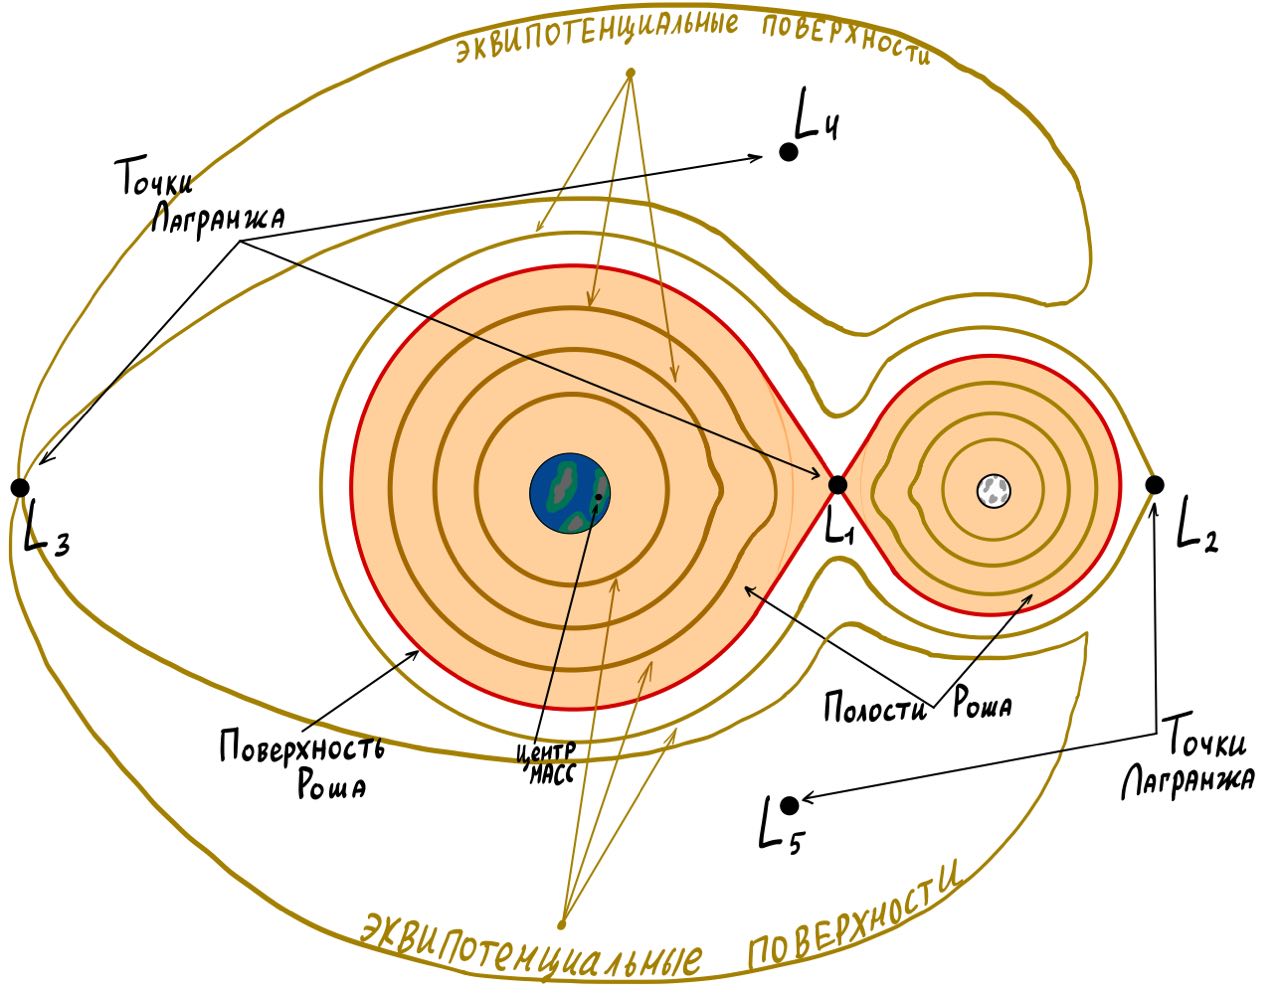 ЭКВИПОТЕНЦИАЛЬНЫЕ ПОВЕРХНОСТИ
L4
Точки
Лагранжа
L3
L1
L2
Полости Роша
Поверхность
Роша
ЦЕНТР
МАСС
Точки
Лагранжа
L5
ЭКВИПОТЕНЦИАЛЬНЫЕ ПОВЕРХНОСТИ